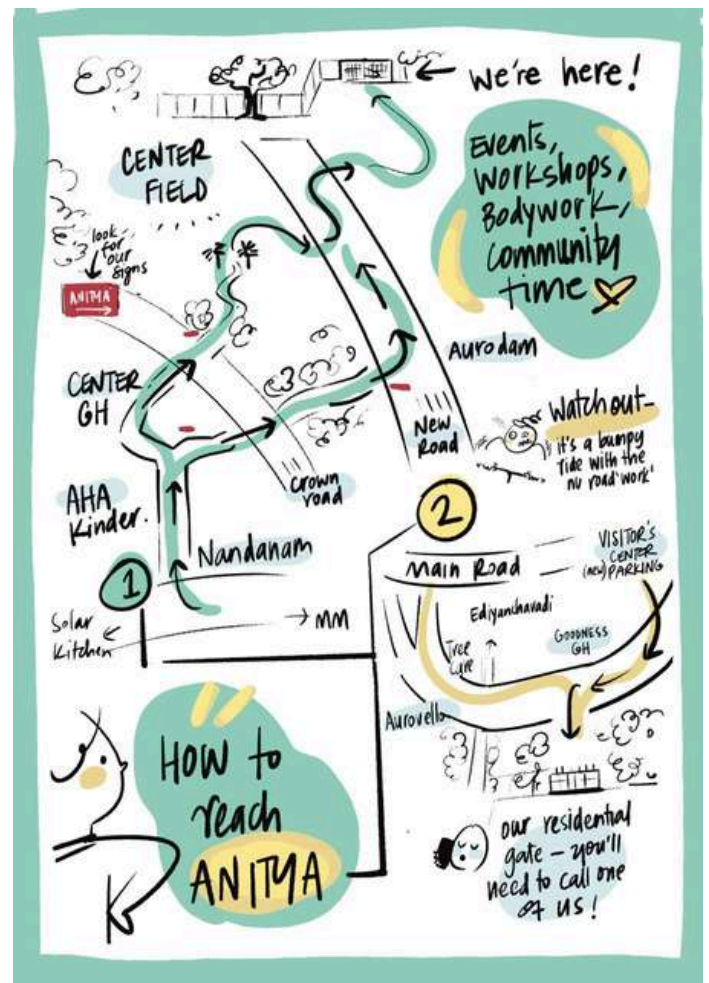 we're here!
CENTER
FIELD
Events,
Workshops,
Bodywork,
community
time
look
for
our
signs
ANITYA
CENTER
GH
Aurodam
New
Road
Watch out-
it's a bumpy
ride with the
nu road 'work'
Crown
road
AHA
Kinder.
Nandanam
1
Solar
Kitchen
MM
2
Main Road
VISITOR'S
CENTER
(new) PARKING
Ediyanchavadi
Tree
Care
GOODNESS
GH
Aurovelo
HOW to
reach
ANITYA
our residential
gate – you'll
need to call one
of us!